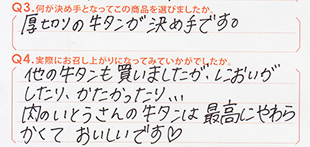 Q3.何が決め手となってこの商品を選びましたか。
厚切りの牛タンが決め手です。
Q4.実際にお召し上がりになってみていかがでしたか。
他の牛タンも買いましたが、においが
したり、かたかったり、、、
肉のいとうさんの牛タンは最高にやわら
かくておいしいです♡